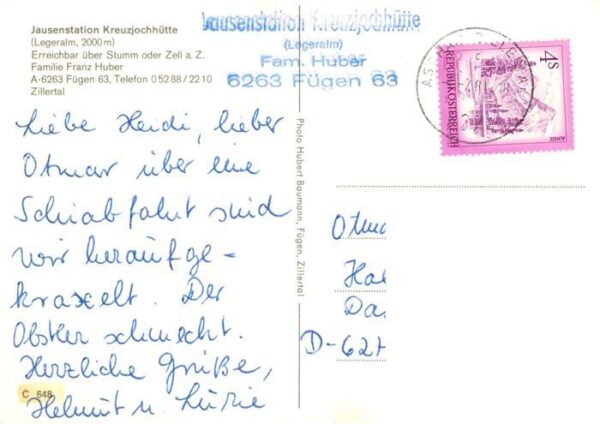 Jausenstation Kreuzjochhütte
(Legeralm, 2000 m)
Erreichbar über Stumm oder Zell a. Z.
Familie Franz Huber
A-6263 Fügen 63, Telefon 0 52 88 / 22 10
Zillertal
Jausenstation Kreuzjochhütte
(Legeralm)
Fam. Huber
6263 Fügen 63
4 S
REPUBLIK ÖSTERREICH
Liebe Heidi, lieber
Otmar über eine
Schiabfahrt sind
wir heraufge-
kraxelt. Der
Obstler schmeckt.
Herzliche Grüße,
Helmut u.
C 648
Photo Hubert Baumann, Fügen, Zillertal
Otm
Ha
Da
D-62